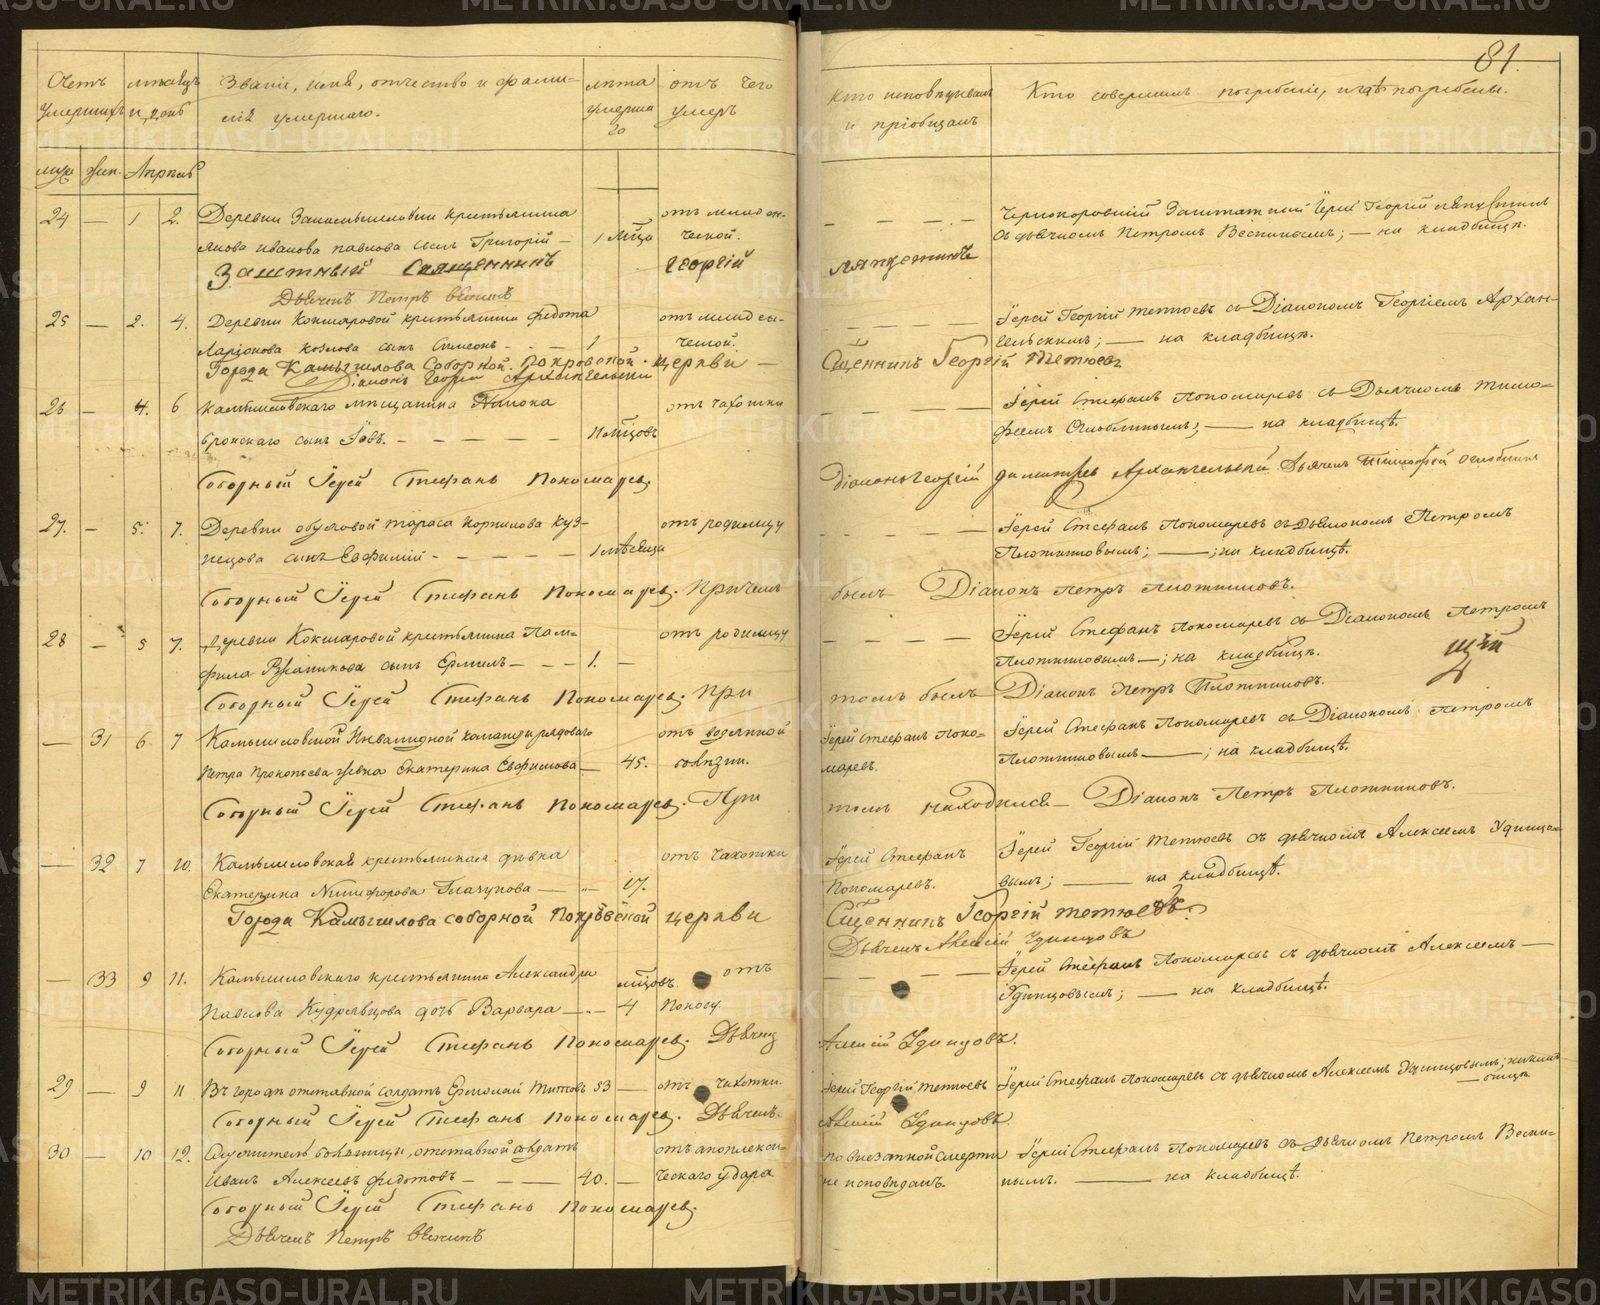 81.
Счетъ умершихъ
мѣсяцъ и день
Званіе, имя, отчество и фами-
лія умершаго.
лѣта умершаго
отъ чего умеръ
Кто исповѣдывалъ и пріобщалъ
Кто совершалъ погребеніе, и гдѣ погребены.
муж. жен. Апрѣль
24 — 1 2. Деревни крестьянина отъ младен- Заштатный Іерей Георгій
Якова Иванова Павлова сынъ Григорій — 1 мѣца ческой. съ дьячкомъ Петромъ — на кладбищѣ.
Заштный Священникъ Георгій Ляпустинъ
Дьячекъ Петръ
25 — 2. 4. Деревни Кокшаровой крестьянина Федота отъ младен- Іерей Георгій Тетюевъ съ Діакономъ Георгіемъ Архан-
Ларіонова Козлова сынъ Симеонъ — 1 ческой. гельскимъ; — на кладбищѣ.
Города Камышлова Соборной Покровской церкви — Сщенникъ Георгій Тетюевъ
Діаконъ Георгій Архангельскій
26 — 4. 6 Камышловскаго мѣщанина отъ чахотки Іерей Стефанъ Пономаревъ съ Дьячкомъ Тимо-
сынъ Іовъ. — 11 мѣцовъ феемъ Оглоблинымъ; — на кладбищѣ.
Соборный Іерей Стефанъ Пономаревъ. Діаконъ Георгій Димитріевъ Архангельскій Дьячекъ Тимофей Оглоблинъ
27. — 5. 7. Деревни Обуховой Тараса Корнилова Куз- отъ родимцу — Іерей Стефанъ Пономаревъ съ Діакономъ Петромъ
нецова сынъ Евфимій — 1 мѣсяца Плотниковымъ; — ; на кладбищѣ.
Соборный Іерей Стефанъ Пономаревъ. Причемъ былъ Діаконъ Петръ Плотниковъ.
28 — 5 7. Деревни Кокшаровой крестьянина Пам- отъ родимцу — Іерей Стефанъ Пономаревъ съ Діакономъ Петромъ
фила сынъ Ермилъ — 1. — Плотниковымъ —; на кладбищѣ.
Соборный Іерей Стефанъ Пономаревъ. При томъ былъ Діаконъ Петръ Плотниковъ.
— 31 6. 7 Камышловской Инвалидной команды рядоваго отъ водянной Іерей Стефанъ Поно- Іерей Стефанъ Пономаревъ съ Діакономъ Петромъ
Петра Прокопьева жена Екатерина Евфимова — 45. болѣзни. маревъ. Плотниковымъ — ; на кладбищѣ.
Соборный Іерей Стефанъ Пономаревъ. При томъ находился — Діаконъ Петръ Плотниковъ.
— 32 7 10. Камышловская крестьянская дѣвка отъ чахотки Іерей Стефанъ Іерей Георгій Тетюевъ съ дьячкомъ Алексеемъ Удинцо-
Екатерина Никифорова — 17. Пономаревъ. вымъ; — на кладбищѣ.
Города Камышлова соборной Покровской церкви Сщенникъ Георгій Тетюевъ
Дьячекъ Алексій Удинцовъ
— 33 9 11. Камышловскаго крестьянина Александра мѣцовъ. отъ — Іерей Стефанъ Пономаревъ съ дьячкомъ Алексеемъ —
Павлова Кудрявцова дочь Варвара — 4 поносу. Удинцовымъ; — на кладбищѣ.
Соборный Іерей Стефанъ Пономаревъ. Дьячекъ Алексій Удинцовъ.
29 — 9 11 Въ городѣ отставной солдатъ Ермолай Титовъ 53 — отъ чахотки Іерей Георгій Тетюевъ Іерей Стефанъ Пономаревъ съ дьячкомъ Алексеемъ Удинцовымъ; на клад-
бищѣ
Соборный Іерей Стефанъ Пономаревъ. Дьячекъ Алексій Удинцовъ.
30 — 10 12. Служитель больницы, отставной солдатъ отъ апоплекси- по внезапной смерти Іерей Стефанъ Пономаревъ съ Дьячкомъ Петромъ
Иванъ Алексѣевъ Федотовъ — 40. — ческаго удара не исповѣданъ. — на кладбищѣ.
Соборный Іерей Стефанъ Пономаревъ.
Дьячекъ Петръ
METRIKI.GASO-URAL.RU